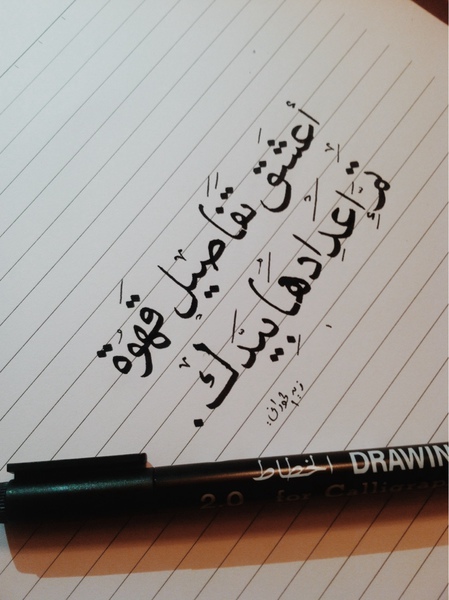 أعشق تفاصيل قهوة
تم إعدادها بيدك.
الخطاط DRAWIN
2.0 for Calligrap